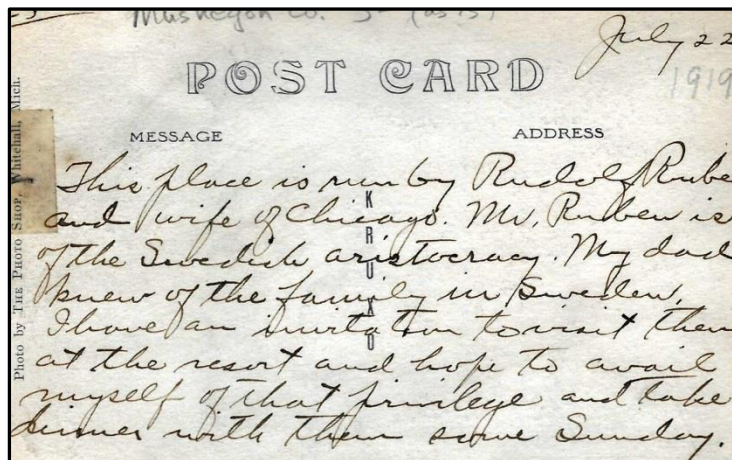 Muskegon Co. 5- (as is)
July 22
1919
POST CARD
MESSAGE
ADDRESS
Photo by THE PHOTO SHOP, Whitehall, Mich.
KRUXO
This place is run by Rudolf Rube
and wife of Chicago. Mr. Ruben is
of the Swedish aristocracy. My dad
knew of the family in Sweden.
I have an invitation to visit them
at the resort and hope to avail
myself of that privilege and take
dinner with them some Sunday.